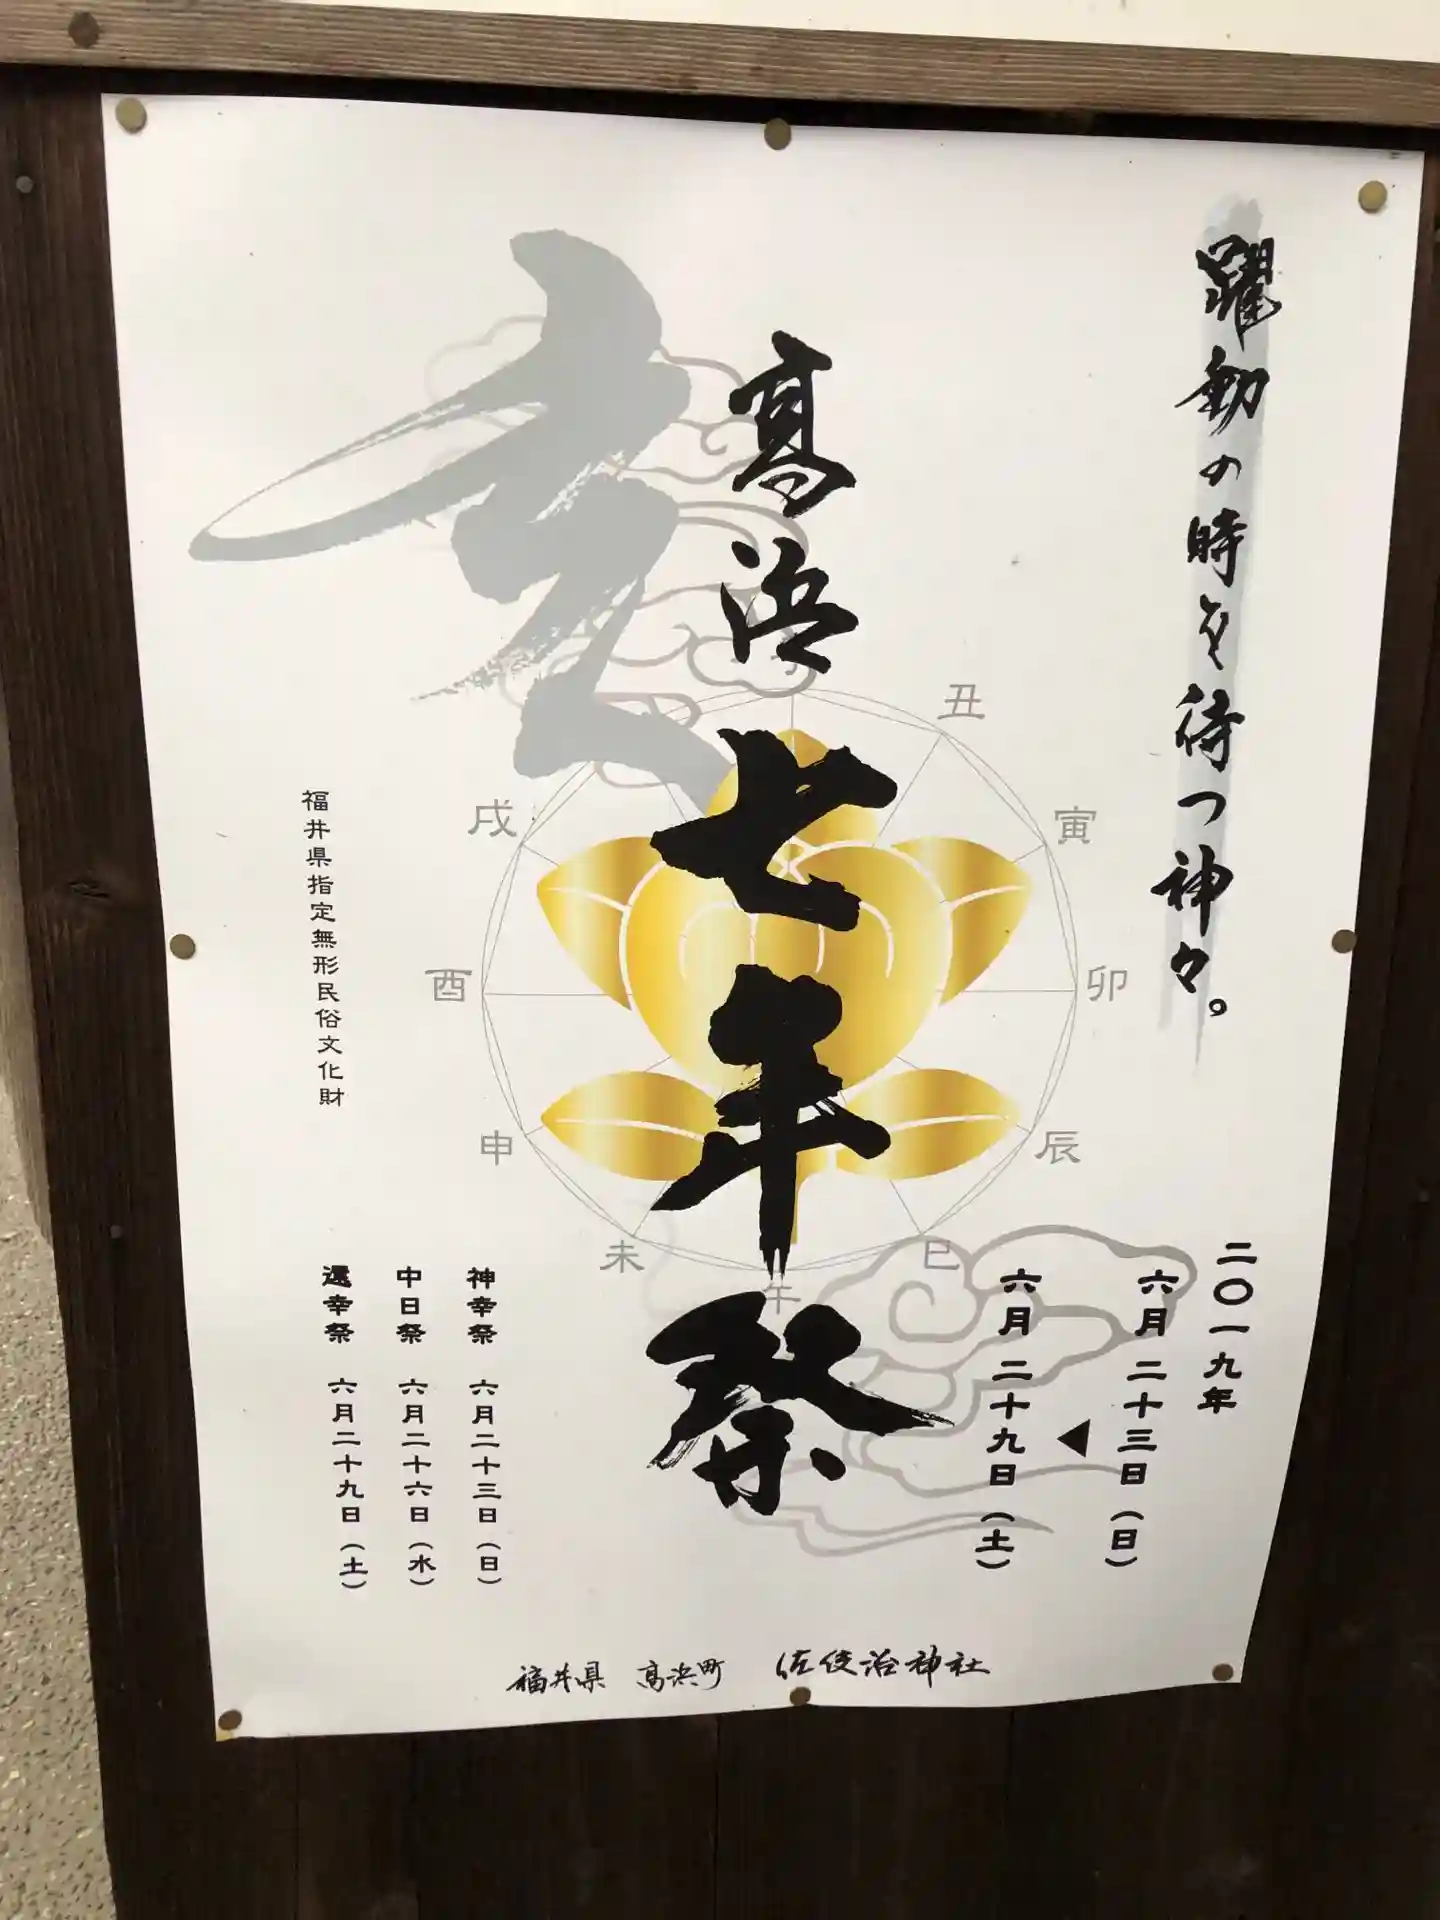 躍動の時を待つ神々。
二〇一九年
六月二十三日（日）
◀
六月二十九日（土）
高浜七年祭
亥
丑
寅
卯
辰
巳
午
未
申
酉
戌
福井県指定無形民俗文化財
神幸祭 六月二十三日（日）
中日祭 六月二十六日（水）
還幸祭 六月二十九日（土）
福井県 高浜町 佐伎治神社